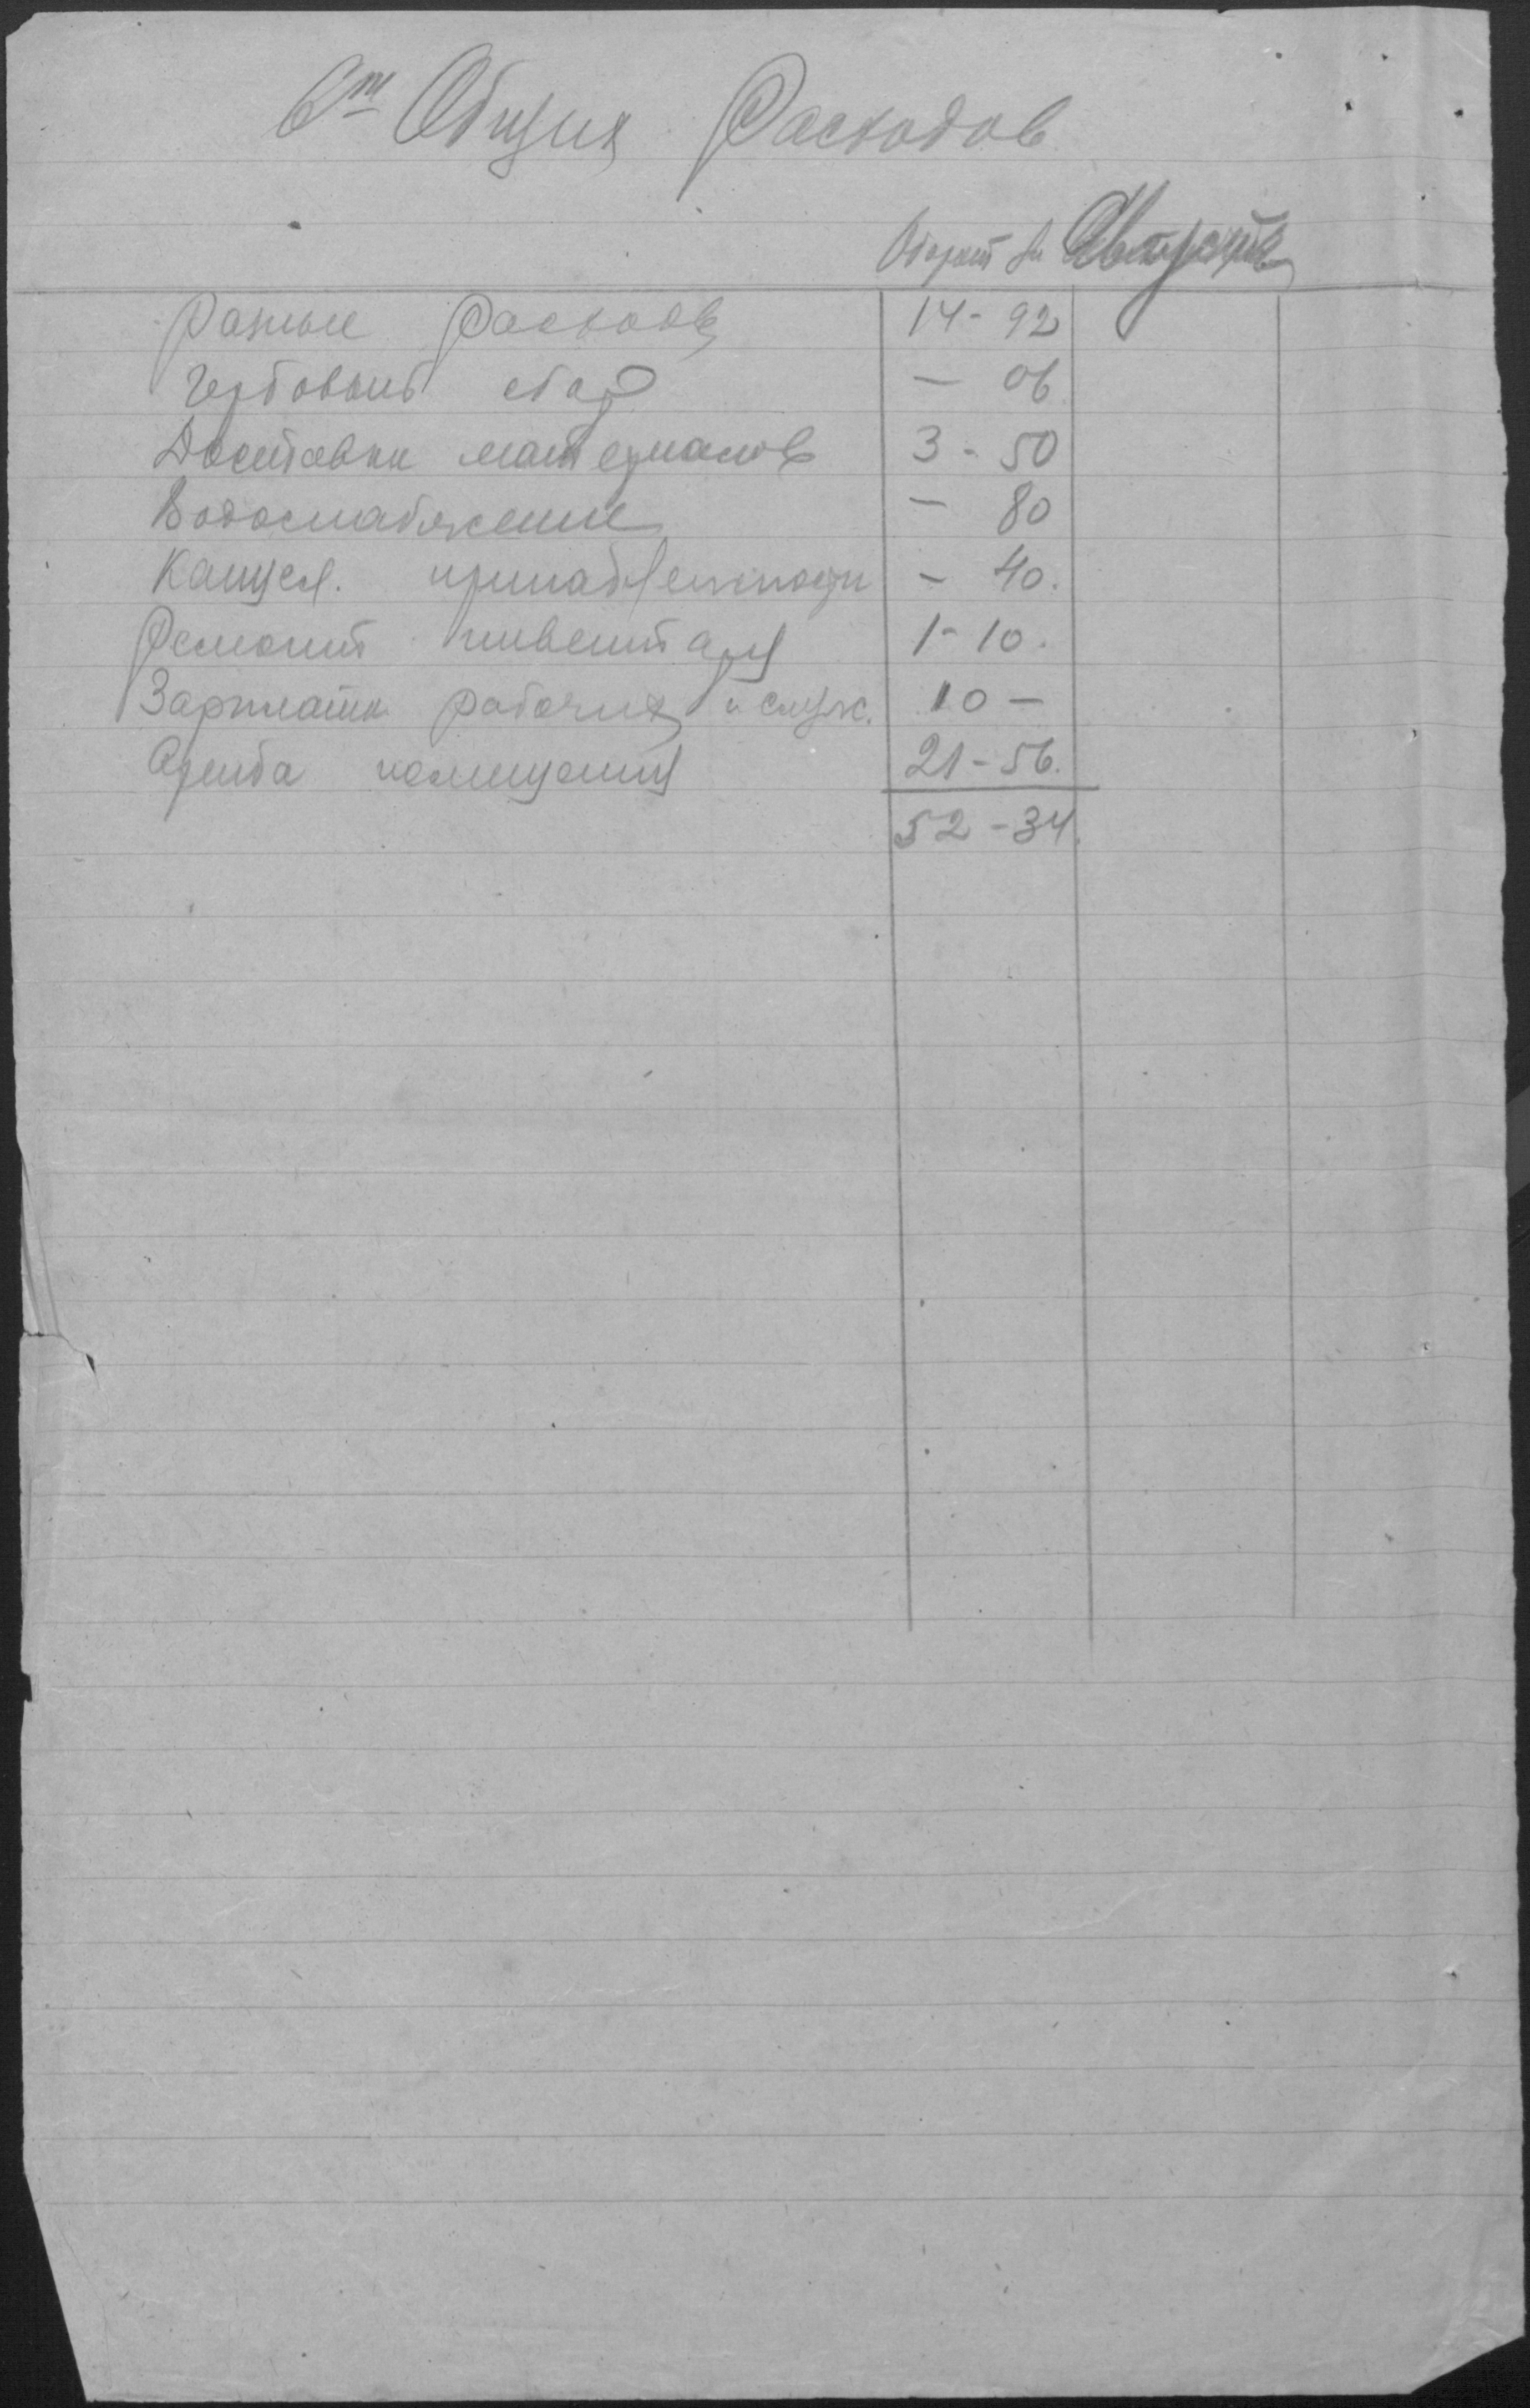 Ст Общих Расходов
Оборот за
Разные расходы 14 - 92
Гербовый сбор — 06
Доставка материалов 3 - 50
Водоснабжение — 80
Канцел. принадлежности — 40.
Ремонт инвентаря 1 - 10.
Зарплата рабочих и служ. 10 —
Аренда помещения 21 - 56.
52 - 34.